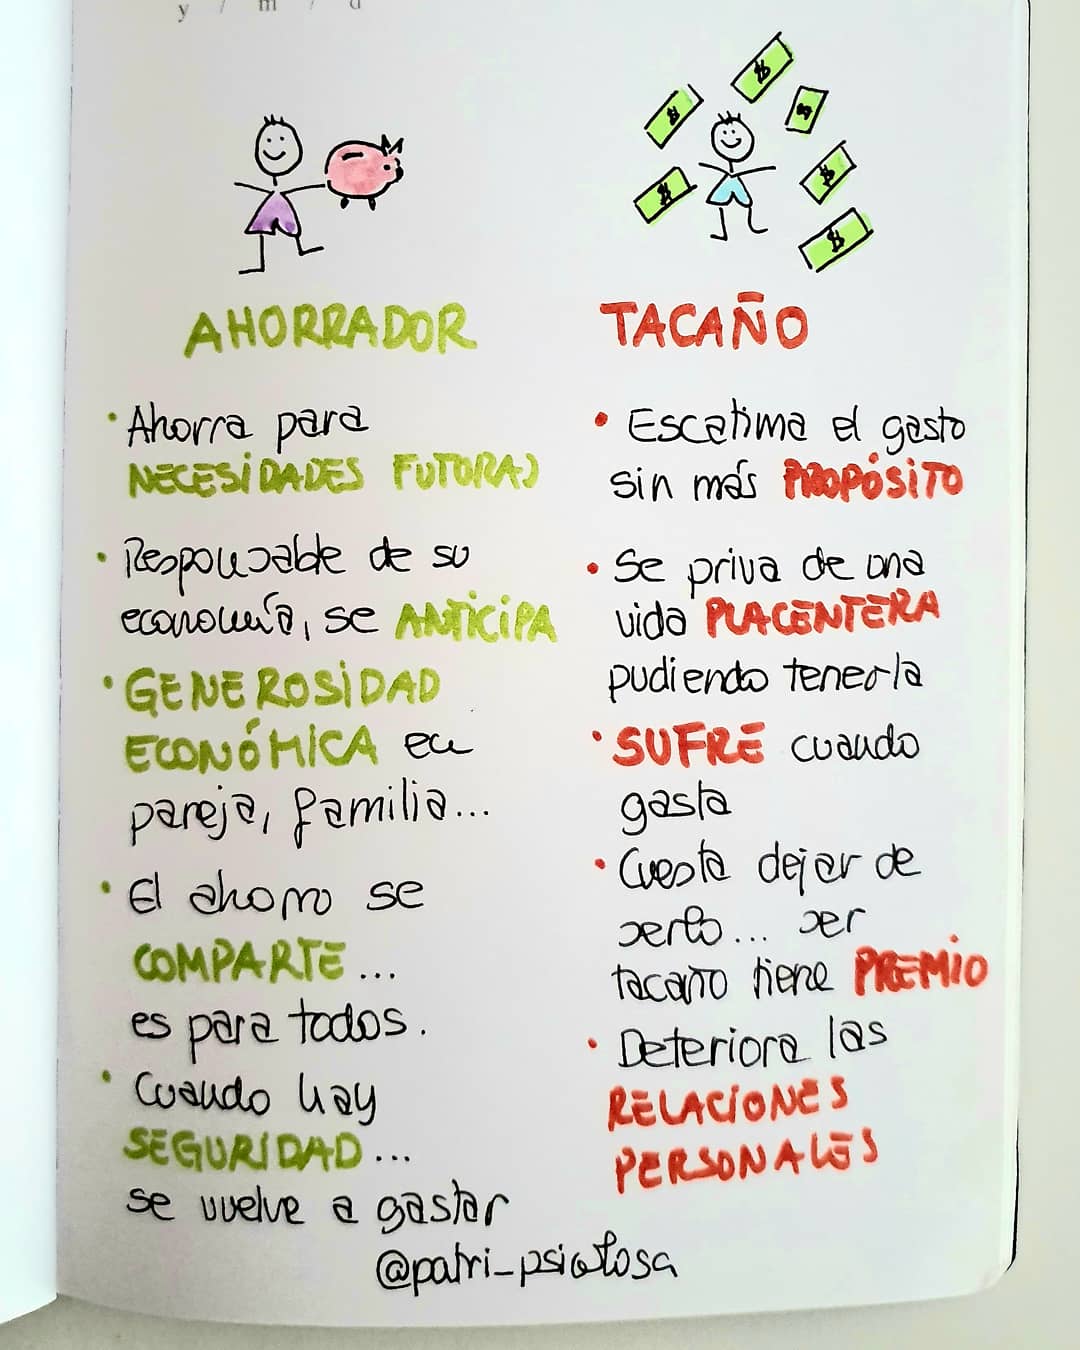 y / m / d
$
$
$
$
$
$
AHORRADOR
• Ahorra para
NECESIDADES FUTURAS
• Responsable de su
economía, se ANTICIPA
• GENEROSIDAD
ECONÓMICA en
pareja, familia...
• El ahorro se
COMPARTE...
es para todos.
• Cuando hay
SEGURIDAD...
se vuelve a gastar
TACAÑO
• Escatima el gasto
sin más PROPÓSITO
• Se priva de una
vida PLACENTERA
pudiendo tenerla
• SUFRE cuando
gasta
• Cuesta dejar de
serlo... ser
tacaño tiene PREMIO
• Deteriora las
RELACIONES
PERSONALES